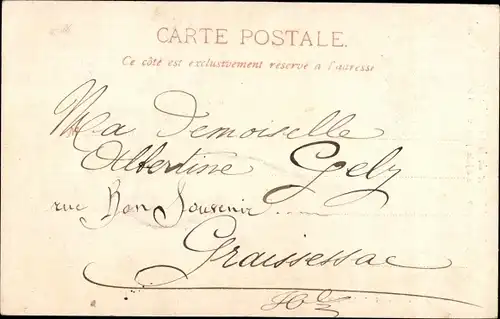 CARTE POSTALE.
Ce côté est exclusivement réservé à l'adresse
Ma Demoiselle
Albertine Gely
rue Bon Souvenir
Graissessac